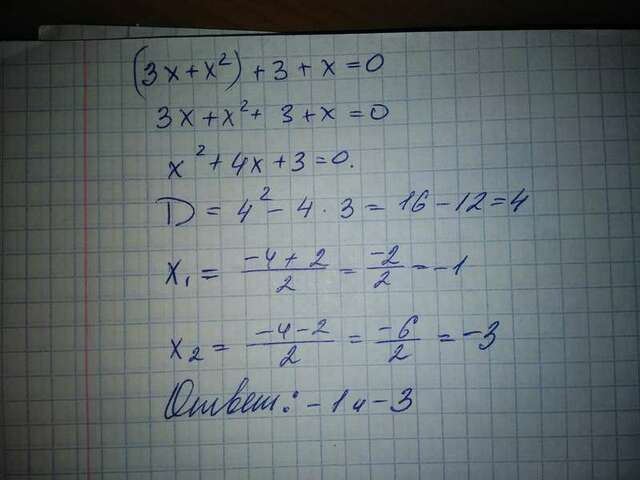 (3x+x²)+3+x=0
3x+x²+3+x=0
x²+4x+3=0.
D=4²-4·3=16-12=4
x₁=(-4+2)/2=-2/2=-1
x₂=(-4-2)/2=-6/2=-3
Ответ: -1 и -3